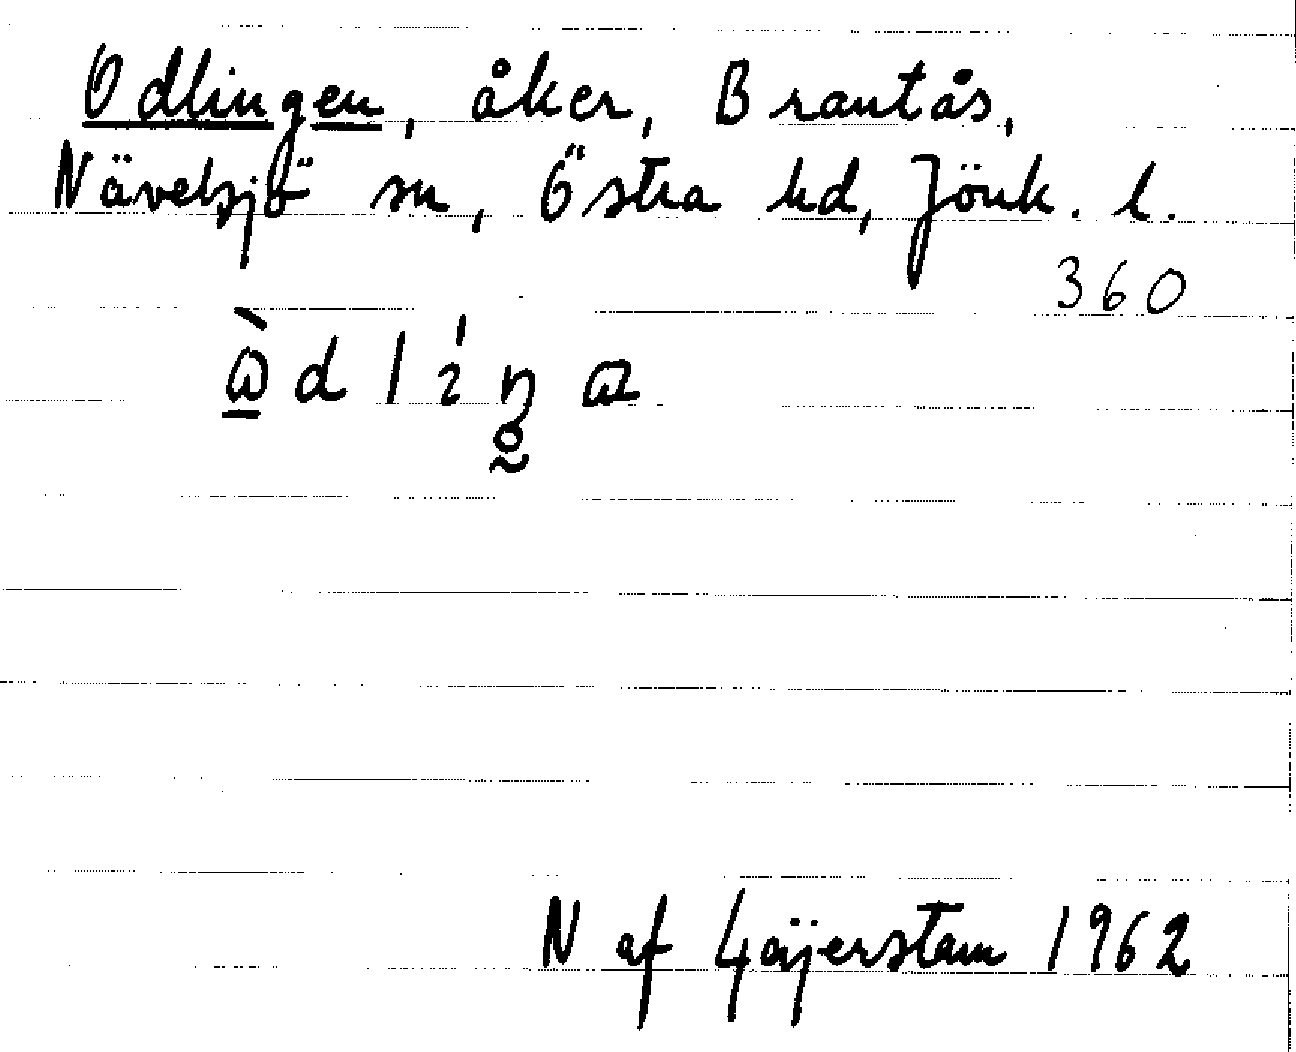 Odlingen, åker, Brantås,
Nävelsjö sn, Östra hd, Jönk. l.
360
N af Gäijerstam 1962